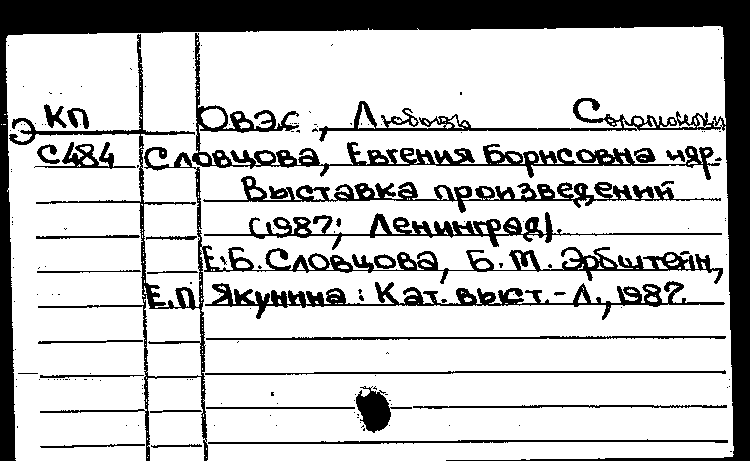 КП Овэс, Любовь Соломонов
Э
С484 Словцова, Евгения Борисовна и др.
Выставка произведений
(1987; Ленинград).
Е.Б. Словцова, Б.М. Эрбштейн,
Е.П Якунина : Кат. выст. - Л., 1987.